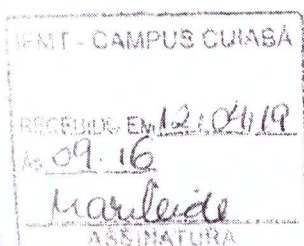 IFMT - CAMPUS CUIABÁ
RECEBIDO EM 12/04/19
Às 09:16
Marileide
ASSINATURA